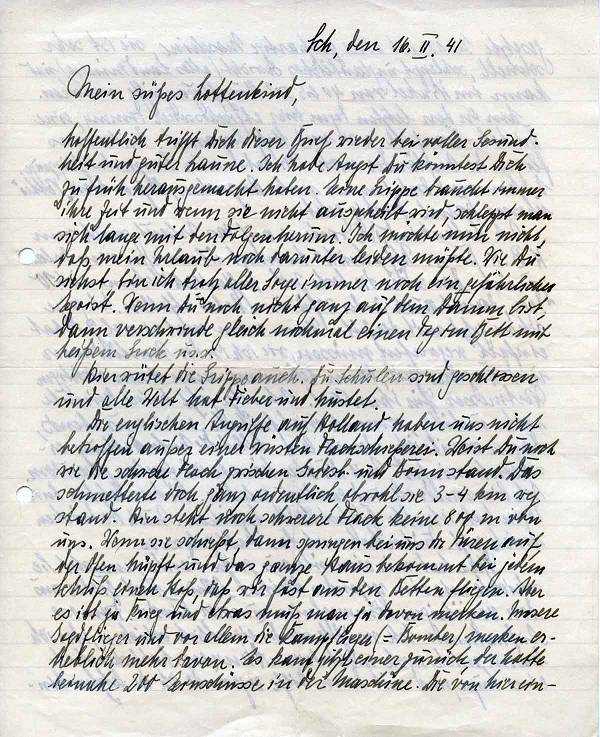 Sch, den 16. II. 41
Mein süßes Lottenkind,
hoffentlich trifft Dich dieser Brief wieder bei voller Gesund-
heit und guter Laune. Ich habe Angst Du könntest Dich
zu früh herausgemacht haben. Eine Grippe braucht immer
ihre Zeit und wenn sie nicht ausgeheilt wird, schleppt man
sich lange mit den Folgen herum. Ich möchte nun nicht,
daß mein Urlaub noch darunter leiden müßte. Wie Du
siehst, bin ich trotz aller Sorge immer noch ein gefährlicher
Egoist. Wenn Du noch nicht ganz auf dem Damm bist,
dann verschwinde gleich nochmal einen Tag im Bett mit
heißem Grock usw.
Hier wütet die Grippe auch. Die Schulen sind geschlossen
und alle Welt hat Fieber und hustet.
Die englischen Angriffe auf Holland haben uns nicht
betroffen außer einer wüsten Flakschießerei. Weist Du noch
wie die schwere Flak zwischen Soest und
schmetterte doch ganz ordentlich obwohl sie 3-4 km weg
stand. Hier steht noch schwerere Flak keine 800 m von
uns. Wenn sie schießt, dann springen bei uns die Türen auf,
der Ofen hüpft und das ganze Haus bekommt bei jedem
Schuß einen Stoß, daß wir fast aus den Betten fliegen. Aber
es ist ja Krieg und etwas muß man ja davon merken. Unsere
Jagdflieger und vor allem die Kampfflieger (= Bomber) merken er-
heblich mehr davon. Es kam jetzt einer zurück der hatte
beinahe 200 in der Maschine. Die von hier ein-